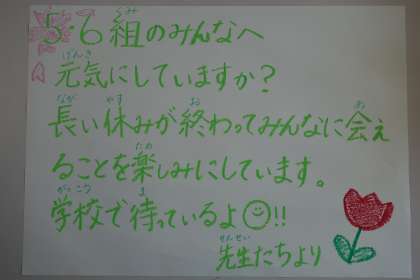 5・6組のみんなへ
元気にしていますか?
長い休みが終わってみんなに会え
ることを楽しみにしています。
学校で待っているよ☺!!
先生たちより